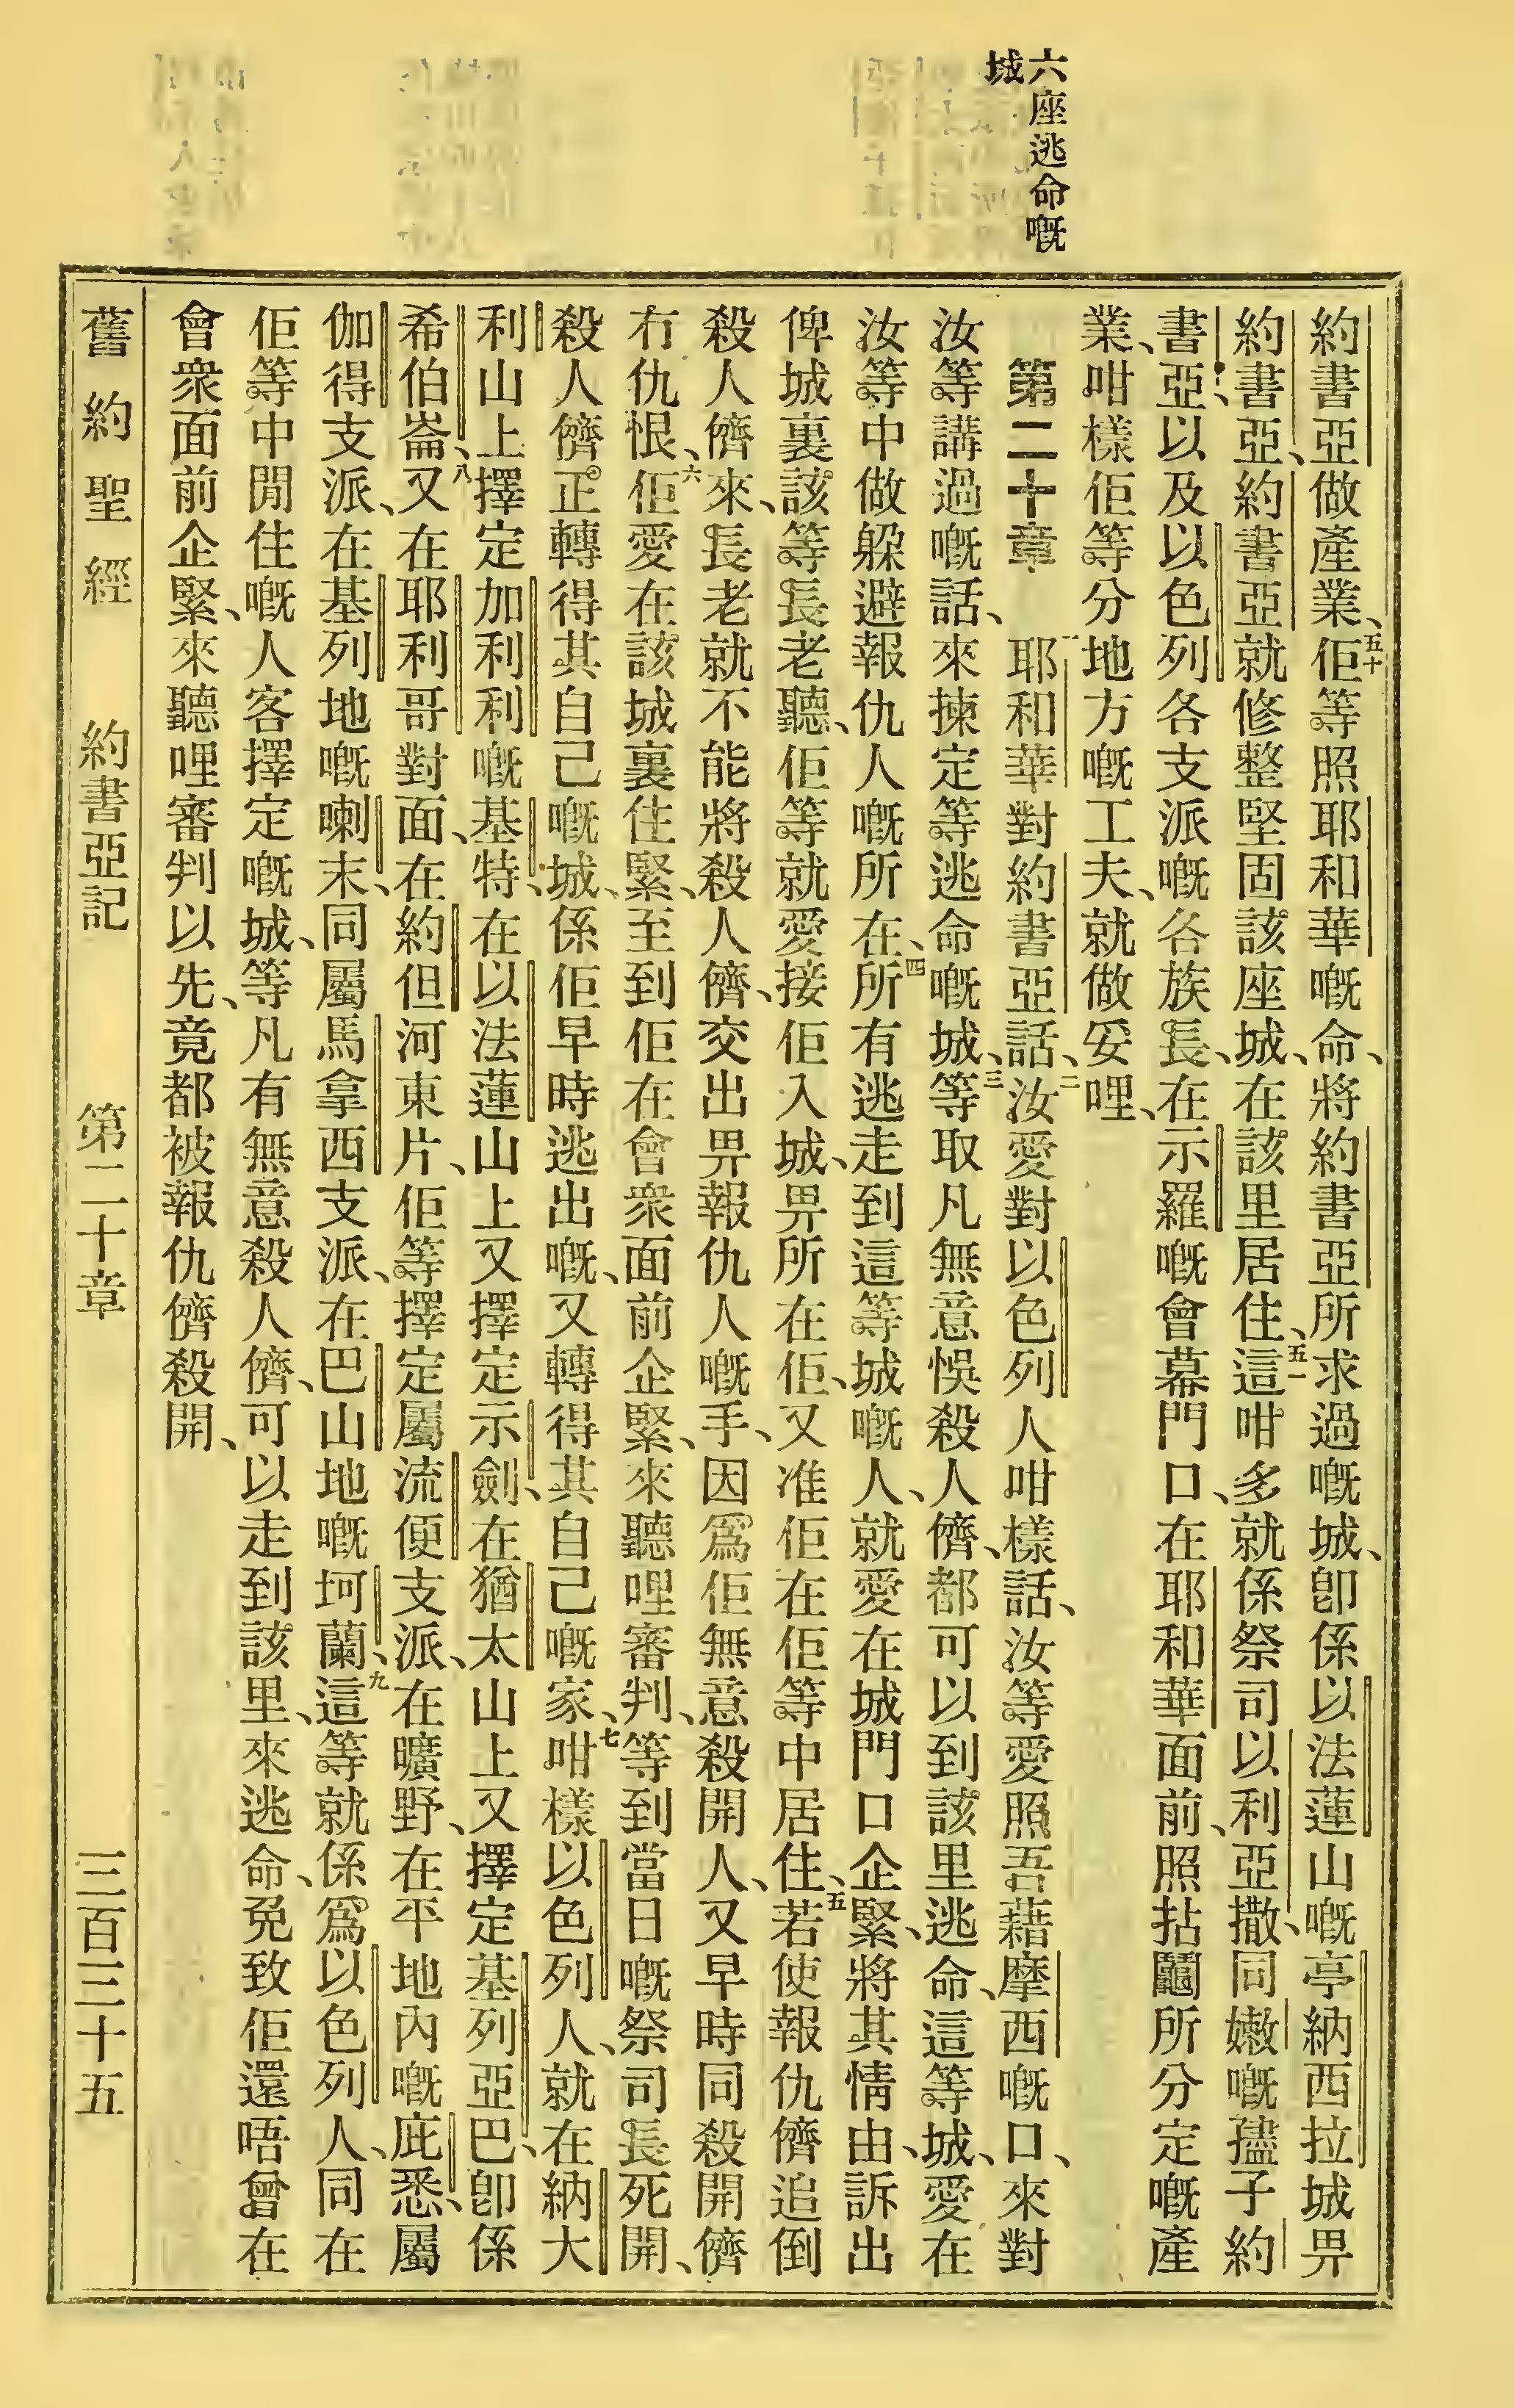 六座逃命嘅
城
約書亞做產業、五十佢等照耶和華嘅命、將約書亞所求過嘅城、卽係以法蓮山嘅亭納西拉城畀
約書亞、約書亞就修整堅固該座城、在該里居住、五一這咁多就係祭司以利亞撒、同嫩嘅孻子約
書亞、以及以色列各支派嘅各族長、在示羅嘅會幕門口、在耶和華面前、照拈鬮所分定嘅產
業、咁樣佢等分地方嘅工夫、就做妥哩、
第二十章　一耶和華對約書亞話、二汝愛對以色列人咁樣話、汝等愛照吾藉摩西嘅口、來對
汝等講過嘅話、來揀定等逃命嘅城、三等取凡無意悞殺人儕、都可以到該里逃命、這等城、愛在
汝等中做躱避報仇人嘅所在、四所有逃走到這等城嘅人、就愛在城門口企緊、將其情由、訴出
俾城裏該等長老聽、佢等就愛接佢入城、畀所在佢、又准佢在佢等中居住、五若使報仇儕追倒
殺人儕來、長老就不能將殺人儕、交出畀報仇人嘅手、因爲佢無意殺開人、又早時同殺開儕
冇仇恨、六佢愛在該城裏住緊、至到佢在會衆面前企緊、來聽哩審判、等到當日嘅祭司長死開、
殺人儕正轉得其自己嘅城、係佢早時逃出嘅、又轉得其自己嘅家、七咁樣以色列人、就在納大
利山上擇定加利利嘅基特、在以法蓮山上又擇定示劍、在猶太山上又擇定基列亞巴、卽係
希伯崙、八又在耶利哥對面、在約但河東片、佢等擇定屬流便支派、在曠野、在平地內嘅庇悉、屬
伽得支派、在基列地嘅喇末、同屬馬拿西支派、在巴山地嘅坷蘭、九這等就係爲以色列人、同在
佢等中間住嘅人客擇定嘅城、等凡有無意殺人儕、可以走到該里、來逃命、免致佢還唔曾在
會衆面前企緊、來聽哩審判以先、竟都被報仇儕殺開、
舊約聖經　約書亞記　第二十章　三百三十五